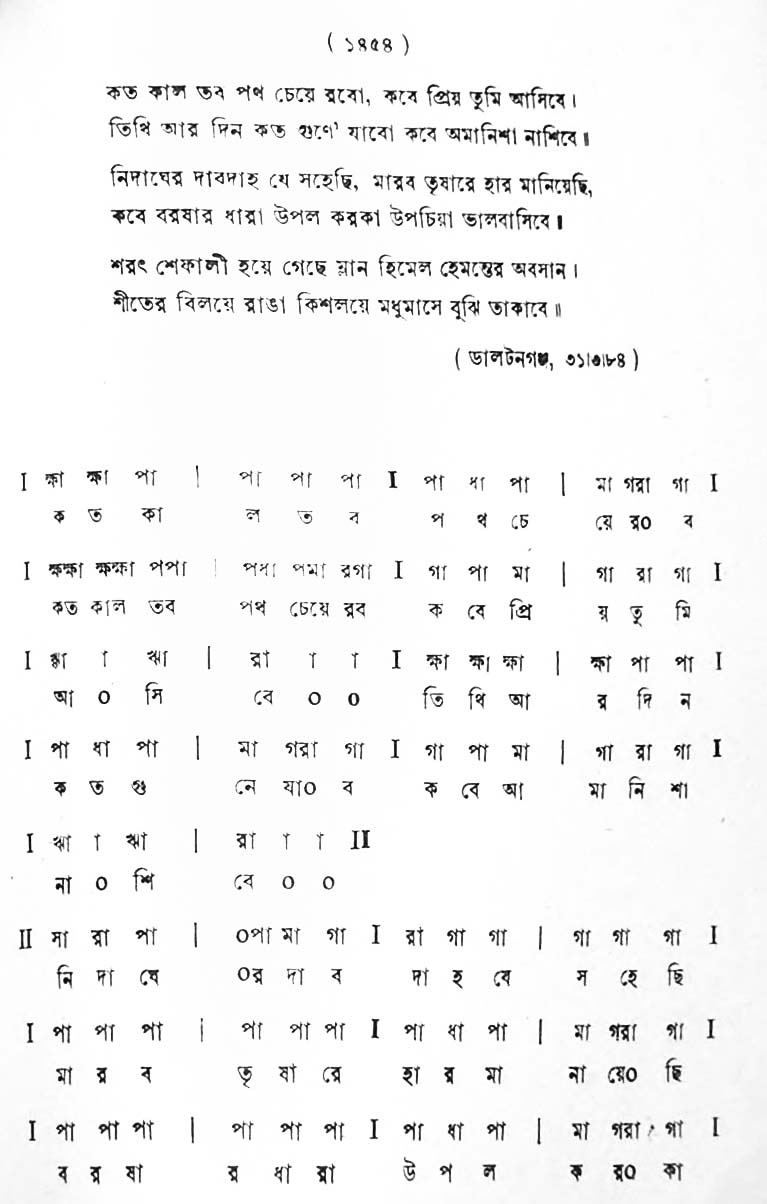 ( ১৪৫৪ )
কত কাল তব পথ চেয়ে রবো, কবে প্রিয় তুমি আসিবে।
তিথি আর দিন কত গুণে' যাবো কবে অমানিশা নাশিবে॥
নিদাঘের দাবদাহ যে সহেছি, মারব তৃষারে হার মানিয়েছি,
কবে বরষার ধারা উপল করকা উপচিয়া ভালবাসিবে।
শরৎ শেফালী হয়ে গেছে ম্লান হিমেল হেমন্তের অবসান।
শীতের বিলয়ে রাঙা কিশলয়ে মধুমাসে বুঝি তাকাবে॥
( ডালটনগঞ্জ, ৩১।৩।৮৪ )
I ক্ষা ক্ষা পা | পা পা পা I পা ধা পা | মা গরা গা I
ক ত কা ল ত ব প থ চে য়ে র০ ব
I ক্ষক্ষা ক্ষক্ষা পপা | পধা পমা রগা I গা পা মা | গা রা গা I
কত কাল তব পথ চেয়ে রব ক বে প্রি য় তু মি
I ঋা া ঋা | রা া া I ক্ষা ক্ষা ক্ষা | ক্ষা পা পা I
আ ০ সি বে ০ ০ তি থি আ র দি ন
I পা ধা পা | মা গরা গা I গা পা মা | গা রা গা I
ক ত গু নে যা০ ব ক বে আ মা নি শা
I ঋা া ঋা | রা া া II
না ০ শি বে ০ ০
II সা রা পা | ০পা মা গা I রা গা গা | গা গা গা I
নি দা ঘে ০র দা ব দা হ যে স হে ছি
I পা পা পা | পা পা পা I পা ধা পা | মা গরা গা I
মা র ব তৃ ষা রে হা র মা না য়ে০ ছি
I পা পা পা | পা পা পা I পা ধা পা | মা গরা গা I
ব র ষা র ধা রা উ প ল ক র০ কা